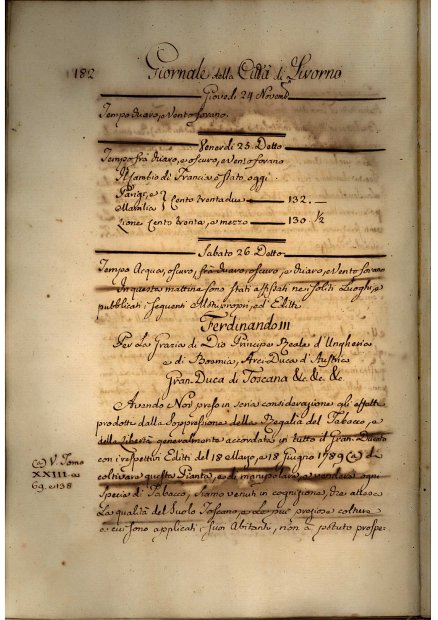 182 Giornale della Città di Livorno
Giovedì 24 Novemb
Tempo chiaro, e Vento forano.
Venerdì 25. Detto
Tempo frà chiaro, e oscuro, e vento forano
Il Cambio di Francia è stato oggi
Parigi, e
Marsilia } Cento trentadue 132. —
Lione Cento trenta, e mezzo 130. ½
Sabato 26. Detto
Tempo Acqua, oscuro, frà chiaro, oscuro, e chiaro, e Vento forano
In questa mattina sono stati affissati nei soliti Luoghi, e
pubblicati i seguenti Motupropri, ed Editti
Ferdinando III
Per la Grazia di Dio Principe Reale d'Ungheria
e di Boemia, Arci-Duca d'Austria
Gran-Duca di Toscana &c. &c. &c.
Avendo Noi preso in seria considerazione gli effetti
prodotti dalla Soppressione della Regalia del Tabacco, e
della libertà generalmente accordata in tutto il Gran-Ducato
con i respettivi Editti del 18 Marzo, e 18 Giugno 1789 (a) di
coltivare questa Pianta, e di manipolare, e vendere ogni
Specie di Tabacco, siamo venuti in cognizione, che attesa
la qualità del Suolo Toscano, e le più preziose colture
a cui sono applicati i suoi Abitanti, non à potuto prospe-
(a) V. Tomo
XXIII. a
69. e 138